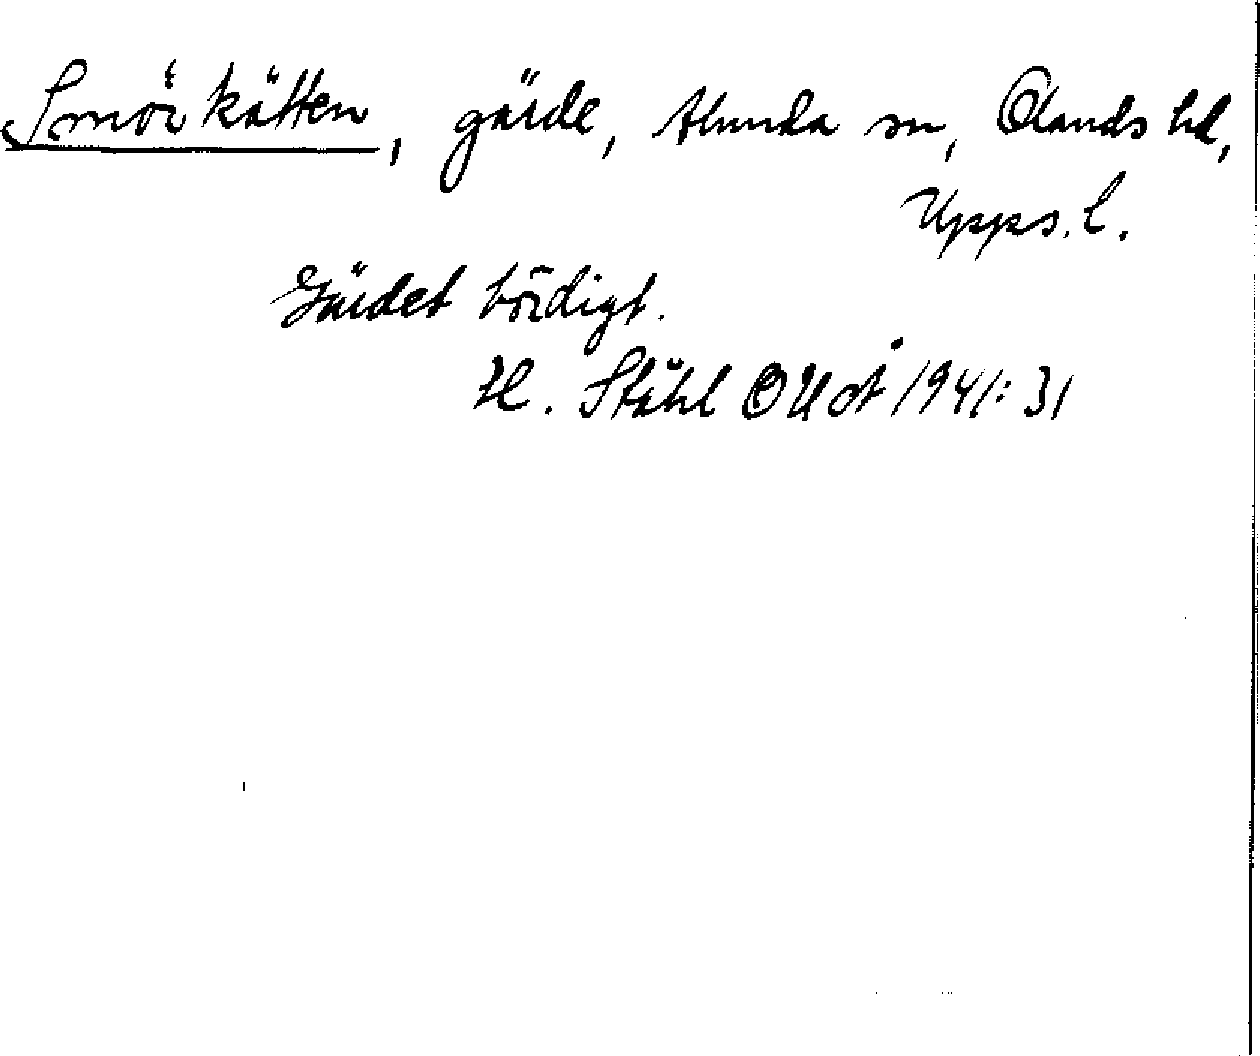 Smörkätten, gärde, Alunda sn, Olands hd,
Upps. l.
Gärdet bördigt.
H. Ståhl OUÅ 1941: 31